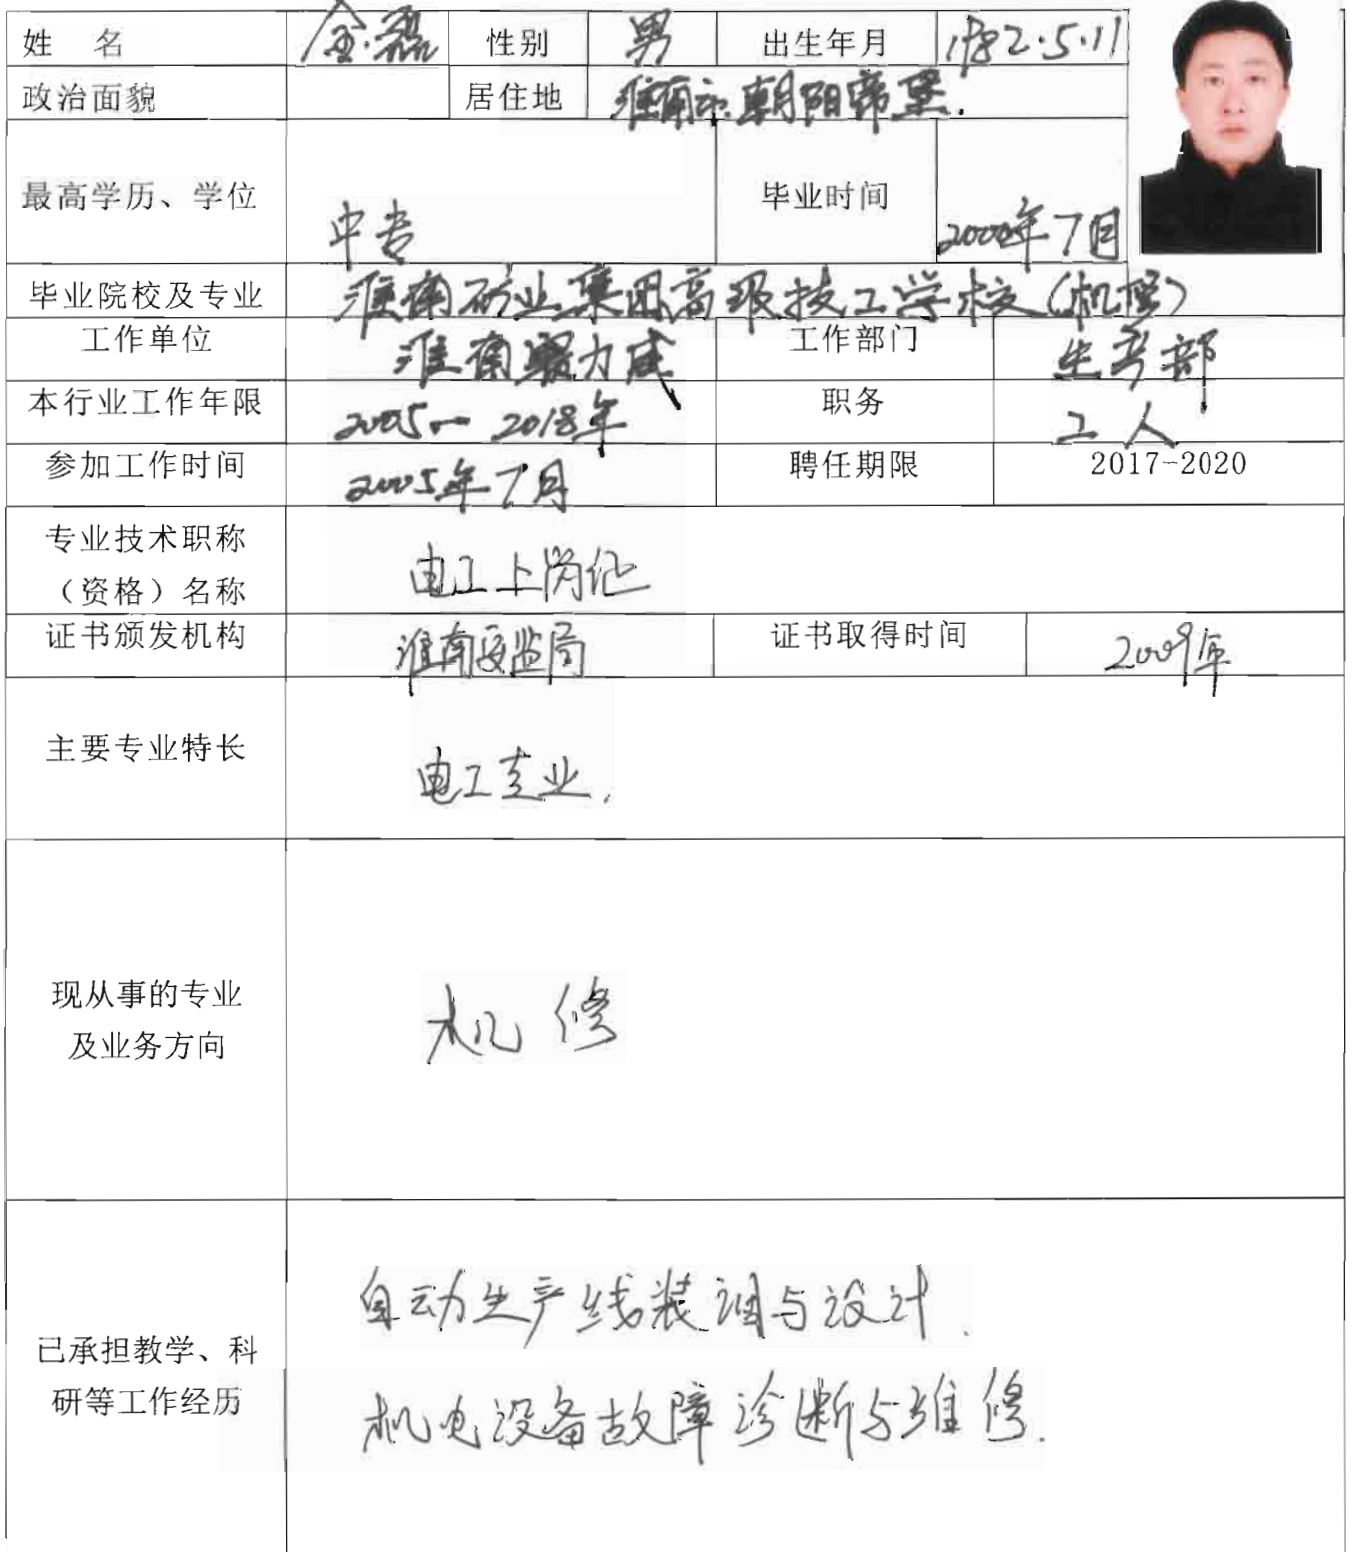 姓 名 金磊 性别 男 出生年月 1982.5.11
政治面貌 居住地 淮南市朝阳帝堡.
最高学历、学位 中专 毕业时间 2000年7月
毕业院校及专业 淮南矿业集团高级技工学校(机修)
工作单位 淮南 力威 工作部门 生产部
本行业工作年限 2005— 2018年 职务 工人
参加工作时间 2005年7月 聘任期限 2017-2020
专业技术职称
(资格)名称 电工上岗证
证书颁发机构 淮南安监局 证书取得时间 2009年
主要专业特长 电工专业.
现从事的专业
及业务方向 机修
自动生产线装调与设计.
已承担教学、科
研等工作经历
机电设备故障诊断与维修.